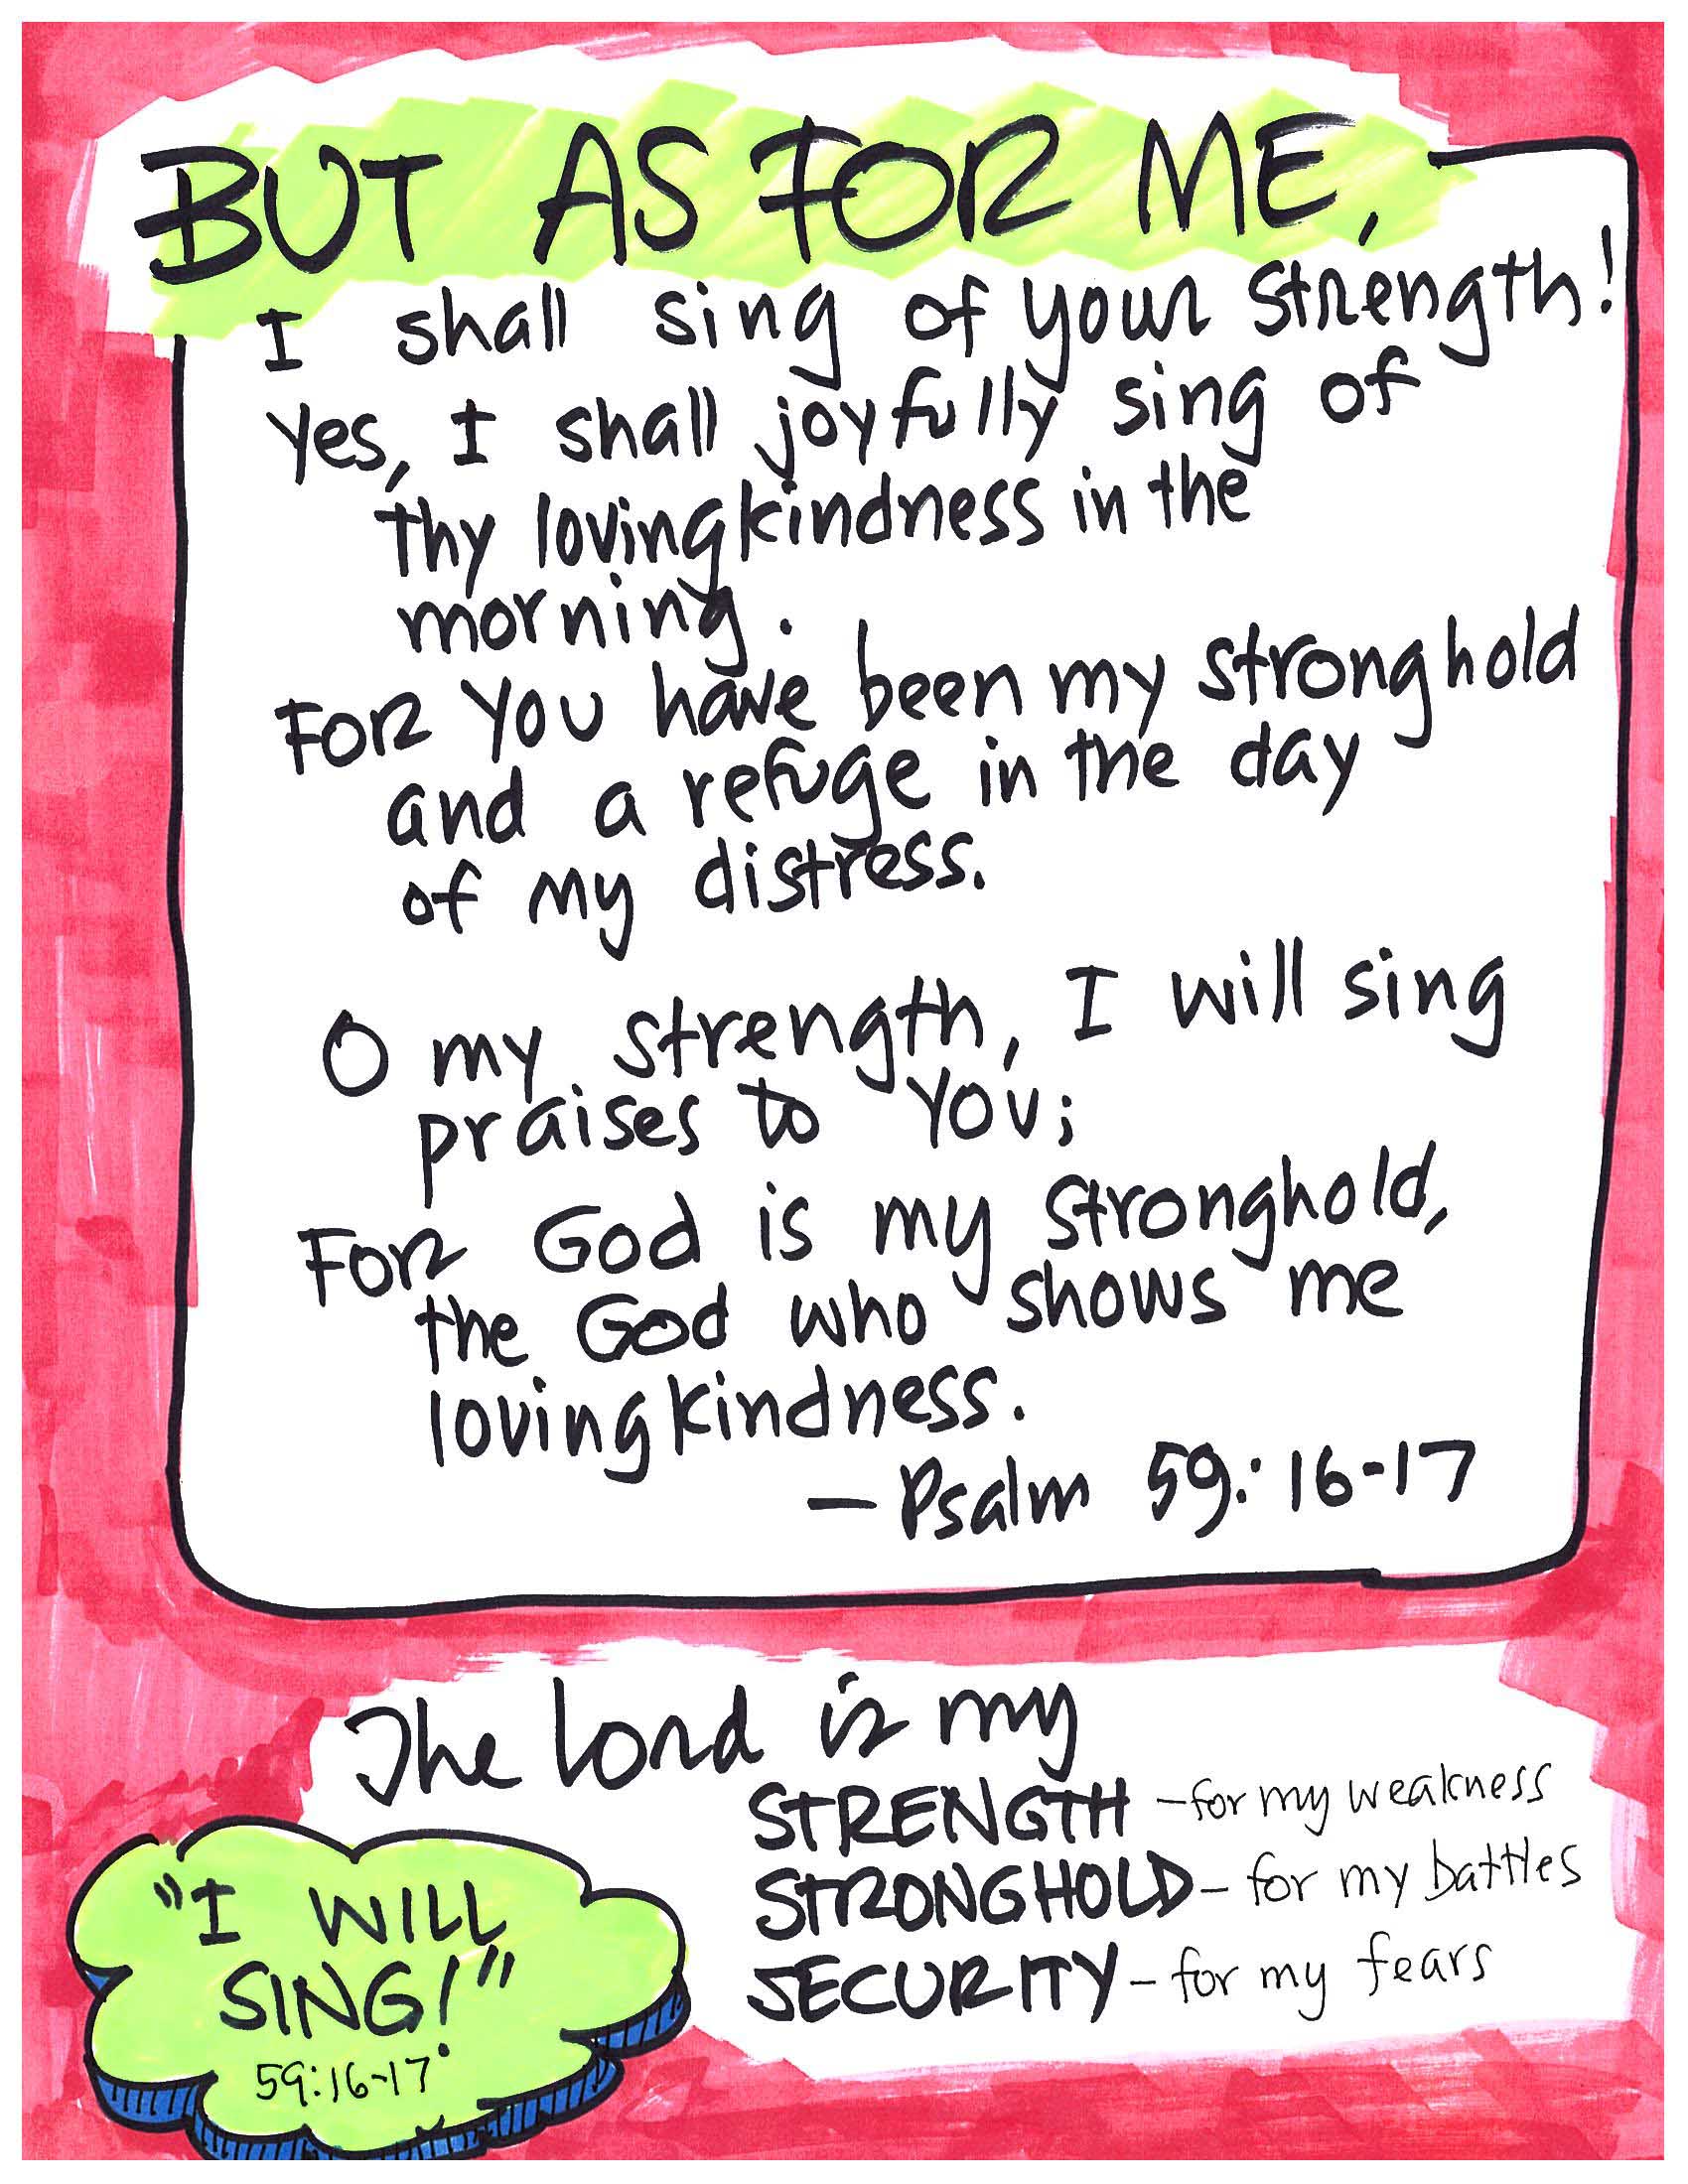 BUT AS FOR ME,
I shall sing of your strength!
Yes, I shall joyfully sing of
thy lovingkindness in the
morning.
For you have been my stronghold
and a refuge in the day
of my distress.
O my strength, I will sing
praises to you;
For God is my stronghold,
the God who shows me
lovingkindness.
— Psalm 59:16-17
The Lord is my
STRENGTH – for my weakness
STRONGHOLD – for my battles
SECURITY – for my fears
"I WILL
SING!"
59:16-17